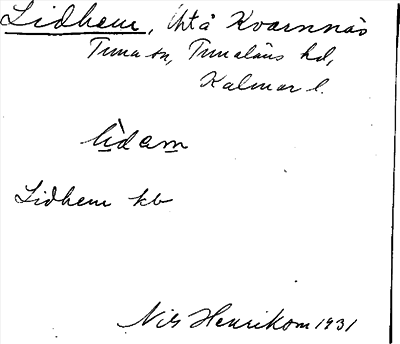 Lidhem, Uhtå Kvarnnäs
Tuna sn, Tunaläns hd,
Kalmar l.
lìdεm
Lidhem kb
Nils Henrikson 1931